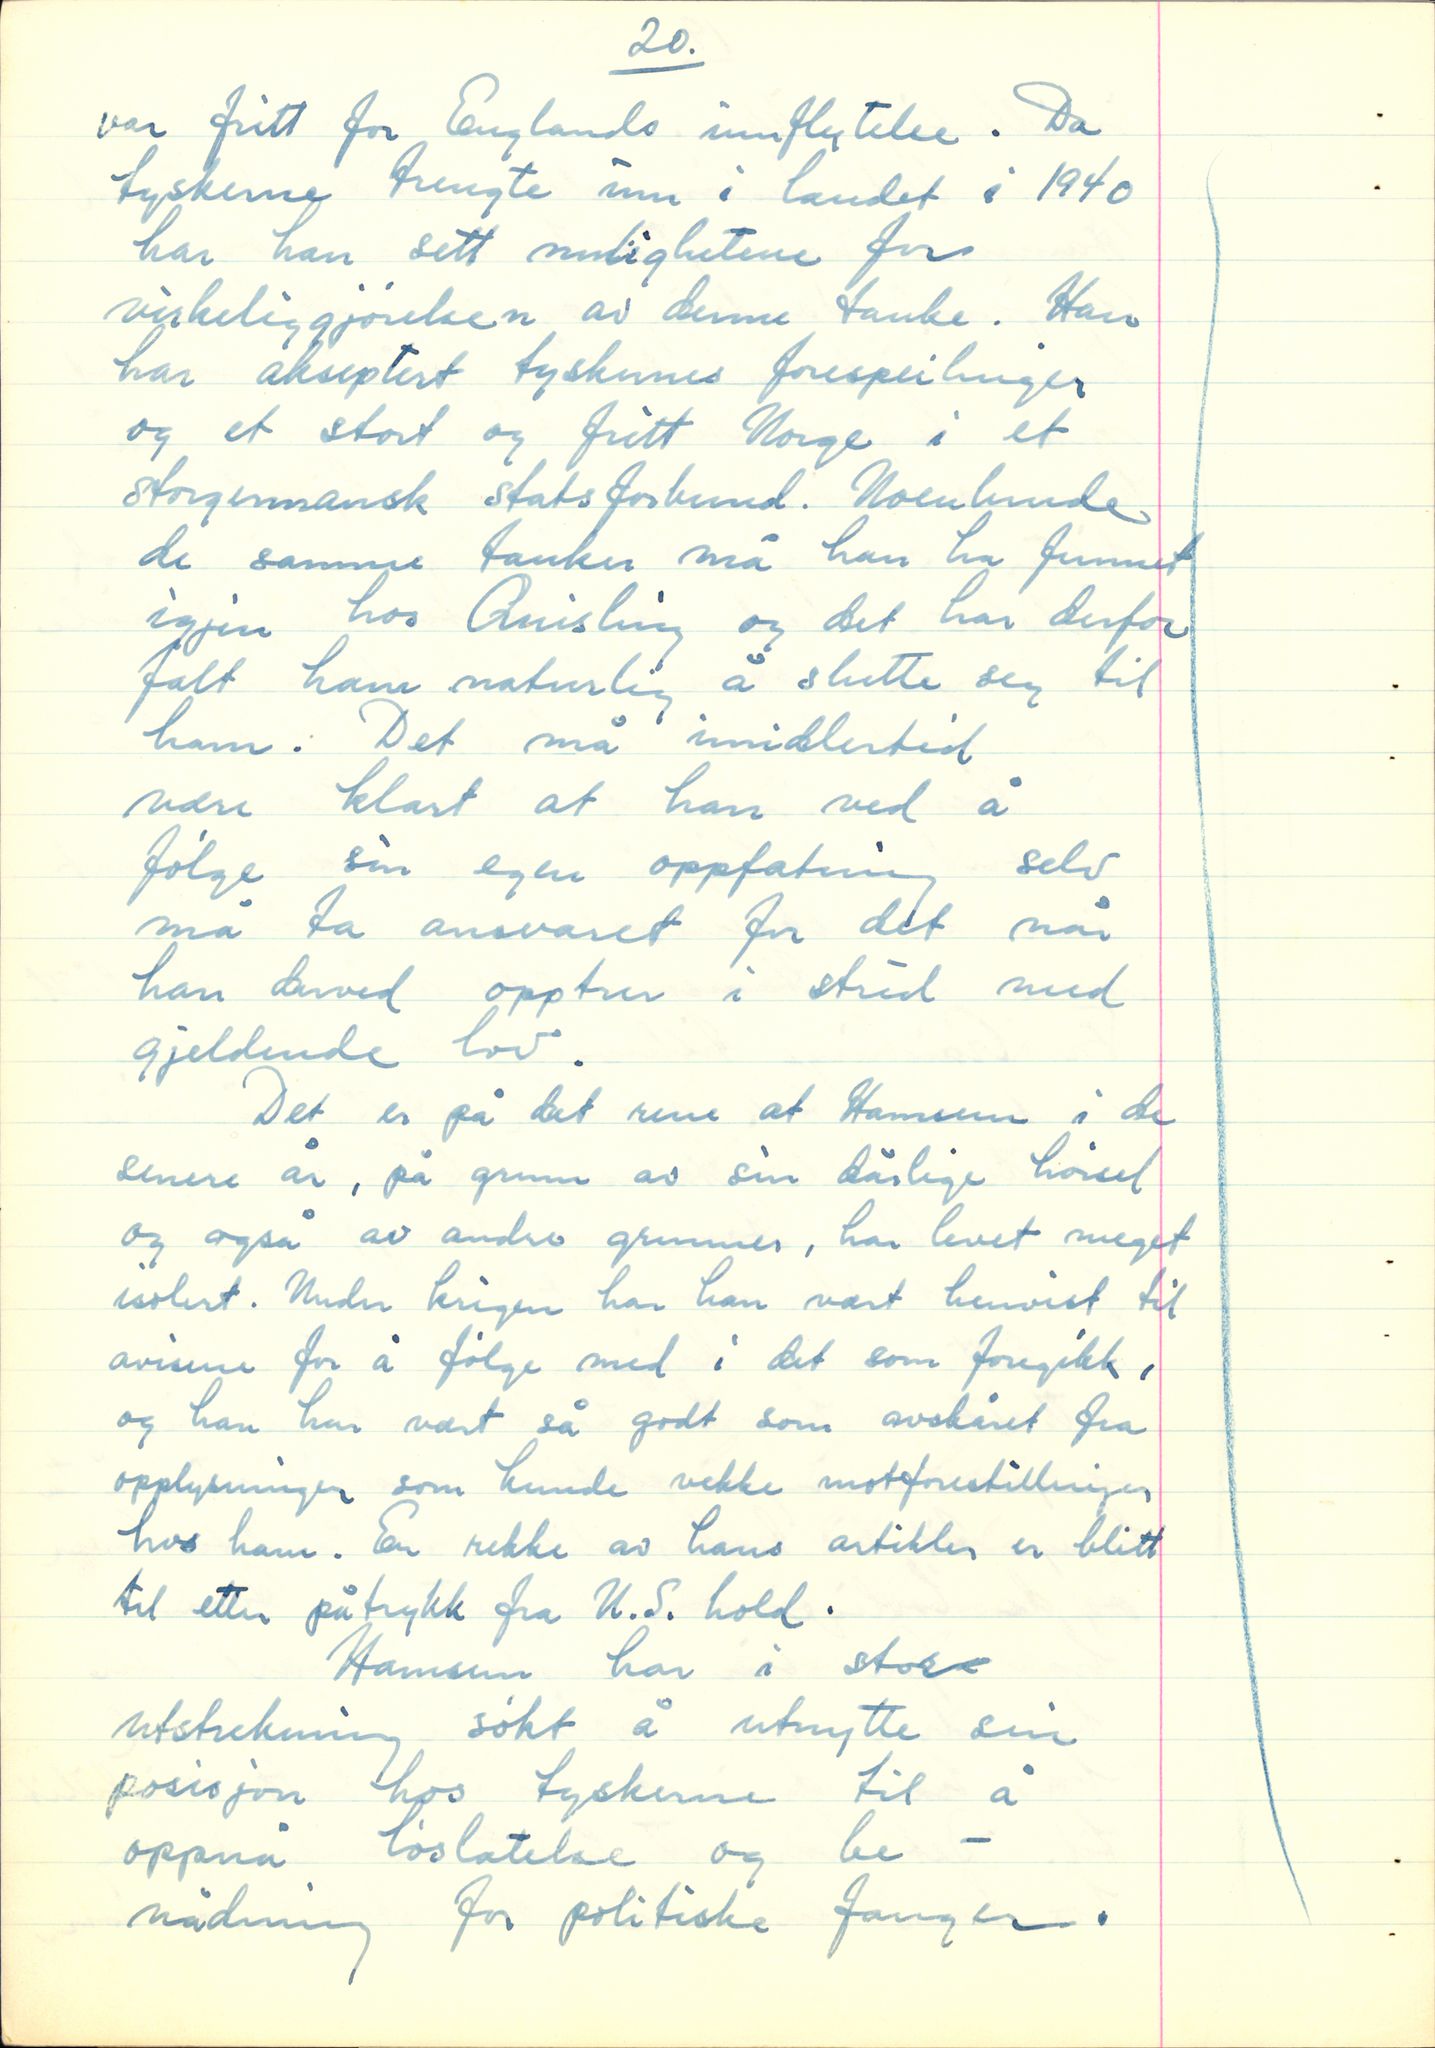 20.
var fritt for Englands innflytelse. Da
tyskerne trengte inn i landet i 1940
har han sett mulighetene for
virkeliggjørelsen av denne tanke. Han
har akseptert tyskernes forespeilinger
og et stort og fritt Norge i et
storgermansk statsforbund. Noenlunde
de samme tanker må han ha funnet
igjen hos Quisling og det har derfor
falt ham naturlig å slutte seg til
ham. Det må imidlertid
være klart at han ved å
følge sin egen oppfatning selv
må ta ansvaret for det når
han derved opptrer i strid med
gjeldende lov.
Det er på det rene at Hamsun i de
senere år, på grunn av sin dårlige hørsel
og også av andre grunner, har levet meget
isolert. Under krigen har han vært henvist til
avisene for å følge med i det som foregikk,
og han har vært så godt som avskåret fra
opplysninger som kunde vekke motforestillinger
hos ham. En rekke av hans artikler er blitt
til etter påtrykk fra N.S. hold.
Hamsun har i stor
utstrekning søkt å utnytte sin
posisjon hos tyskerne til å
oppnå løslatelse og be-
nådning for politiske fanger.